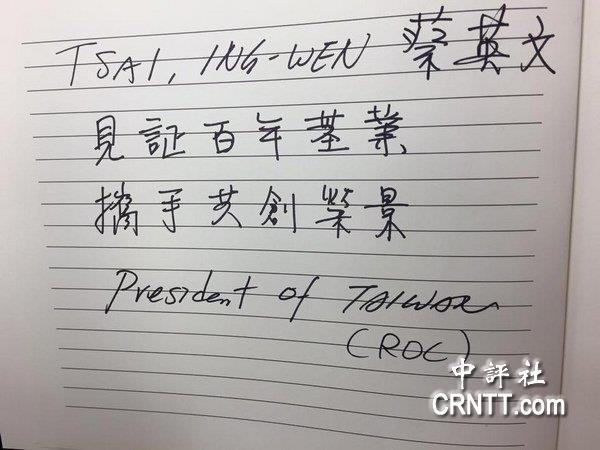 TSAI, ING-WEN 蔡英文
見証百年基業
攜手共創榮景
President of TAIWAN
(ROC)
中評社
CRNTT.com